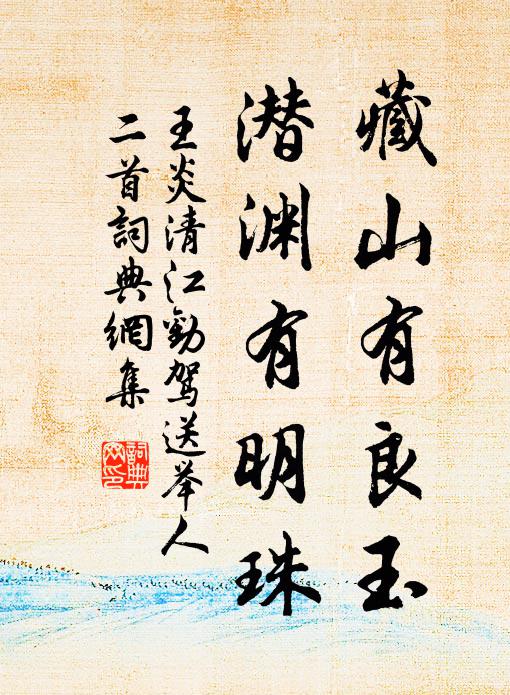 藏山有良玉
潜渊有明珠
王炎清江勸驾送举人
二首詞典網集
詞典
网印